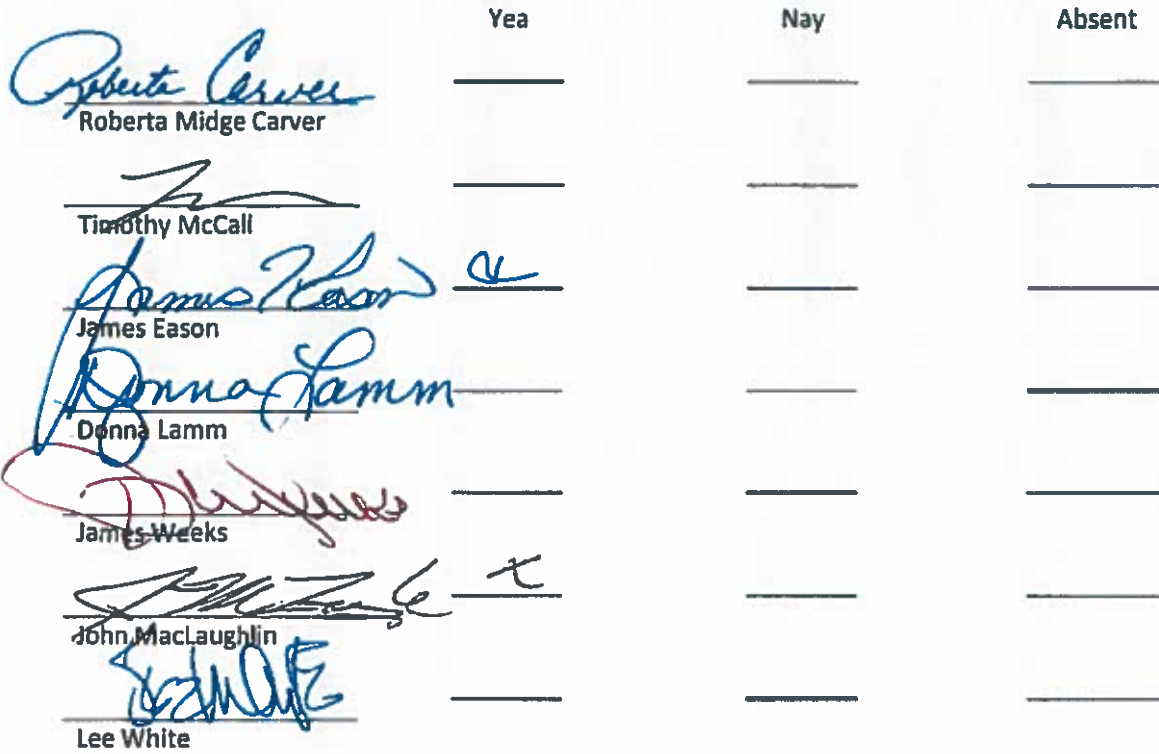 Yea Nay Absent
Roberta Carver
Roberta Midge Carver
Timothy McCall
James Eason
James Eason
Donna Lamm
Donna Lamm
James Weeks
John MacLaughlin
Lee White